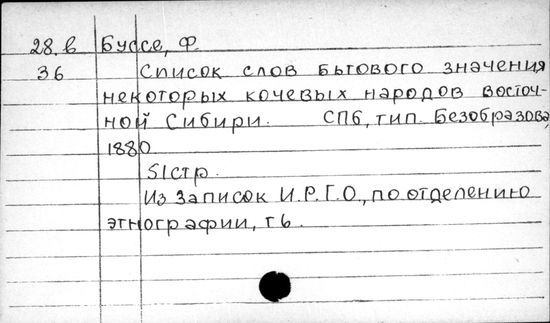 28. в Буссе, Ф.
36 Список слов бытового значения
некоторых кочевых народов восточ-
ной Сибири. СПб, тип. Безобразова,
1880.
51стр.
Из Записок И.Р.Г.О., по отделению
этнографии, т 6.